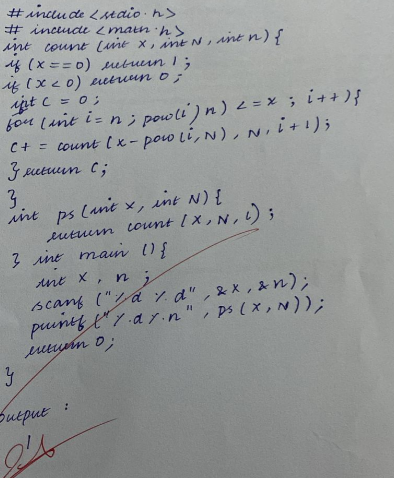 # include <stdio.h>
# include <math.h>
int count (int x, int N, int n) {
if (x==0) return 1;
if (x<0) return 0;
int c = 0;
for (int i = n ; pow(i) n) <= x ; i++){
c+ = count (x-pow(i, N), N, i+1);
} return c;
}
int ps (int x, int N) {
return count (x, N, 1);
} int main () {
int x, n ;
scanf ("%d %d", &x, &n);
printf ("%d %n", ps(x, N));
return 0;
}
output :
1